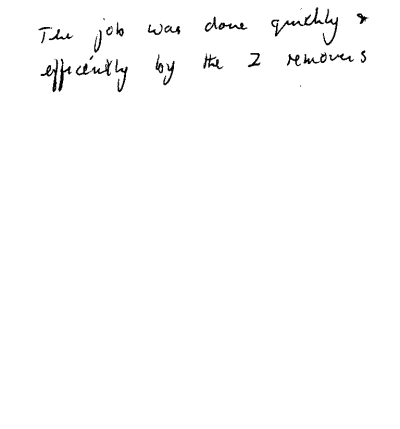 The job was done quickly &
efficiently by the 2 removers